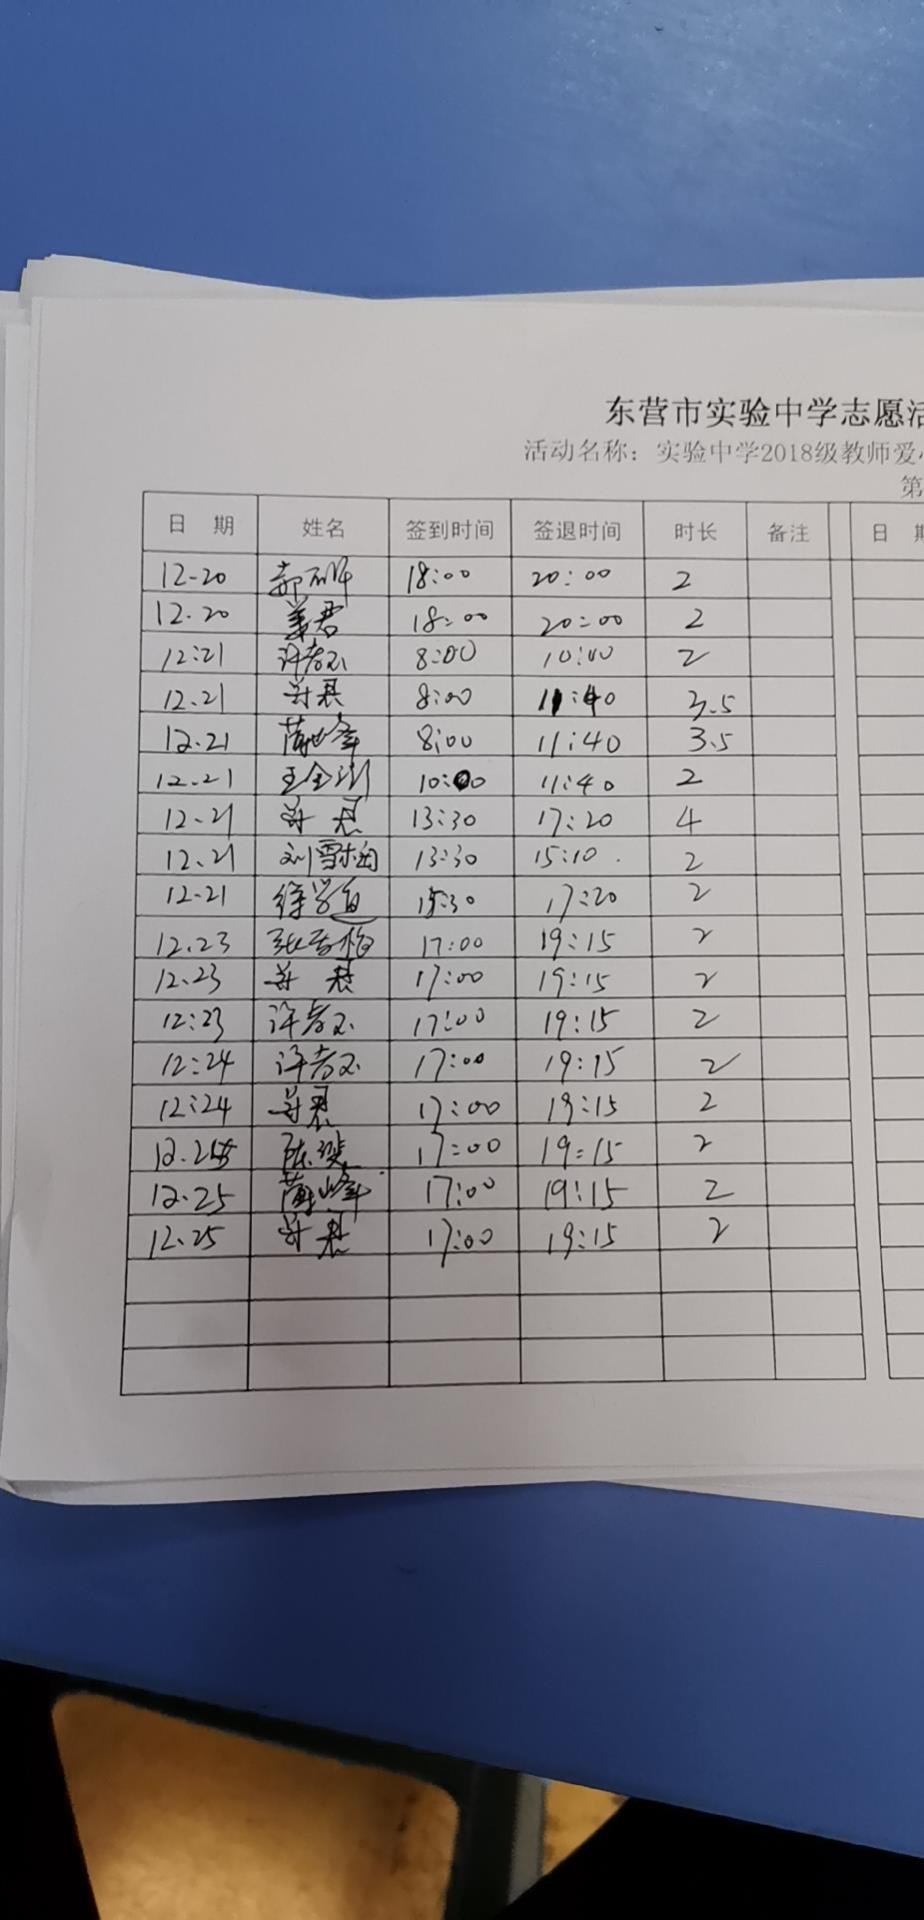 东营市实验中学志愿活
活动名称：实验中学2018级教师爱心
第
日 期 姓名 签到时间 签退时间 时长 备注 日 期
12-20 18:00 20:00 2
12.20 姜君 18:00 20:00 2
12:21 8:00 10:40 2
12.21 8:00 11:40 3.5
12.21 8:00 11:40 3.5
12.21 10:00 11:40 2
12.21 13:30 17:20 4
12.21 刘雪梅 13:30 15:10. 2
12.21 15:30 17:20 2
12.23 17:00 19:15 2
12.23 17:00 19:15 2
12:23 17:00 19:15 2
12:24 17:00 19:15 2
12:24 17:00 19:15 2
17:00 19:15 2
12.25 17:00 19:15 2
12.25 17:00 19:15 2